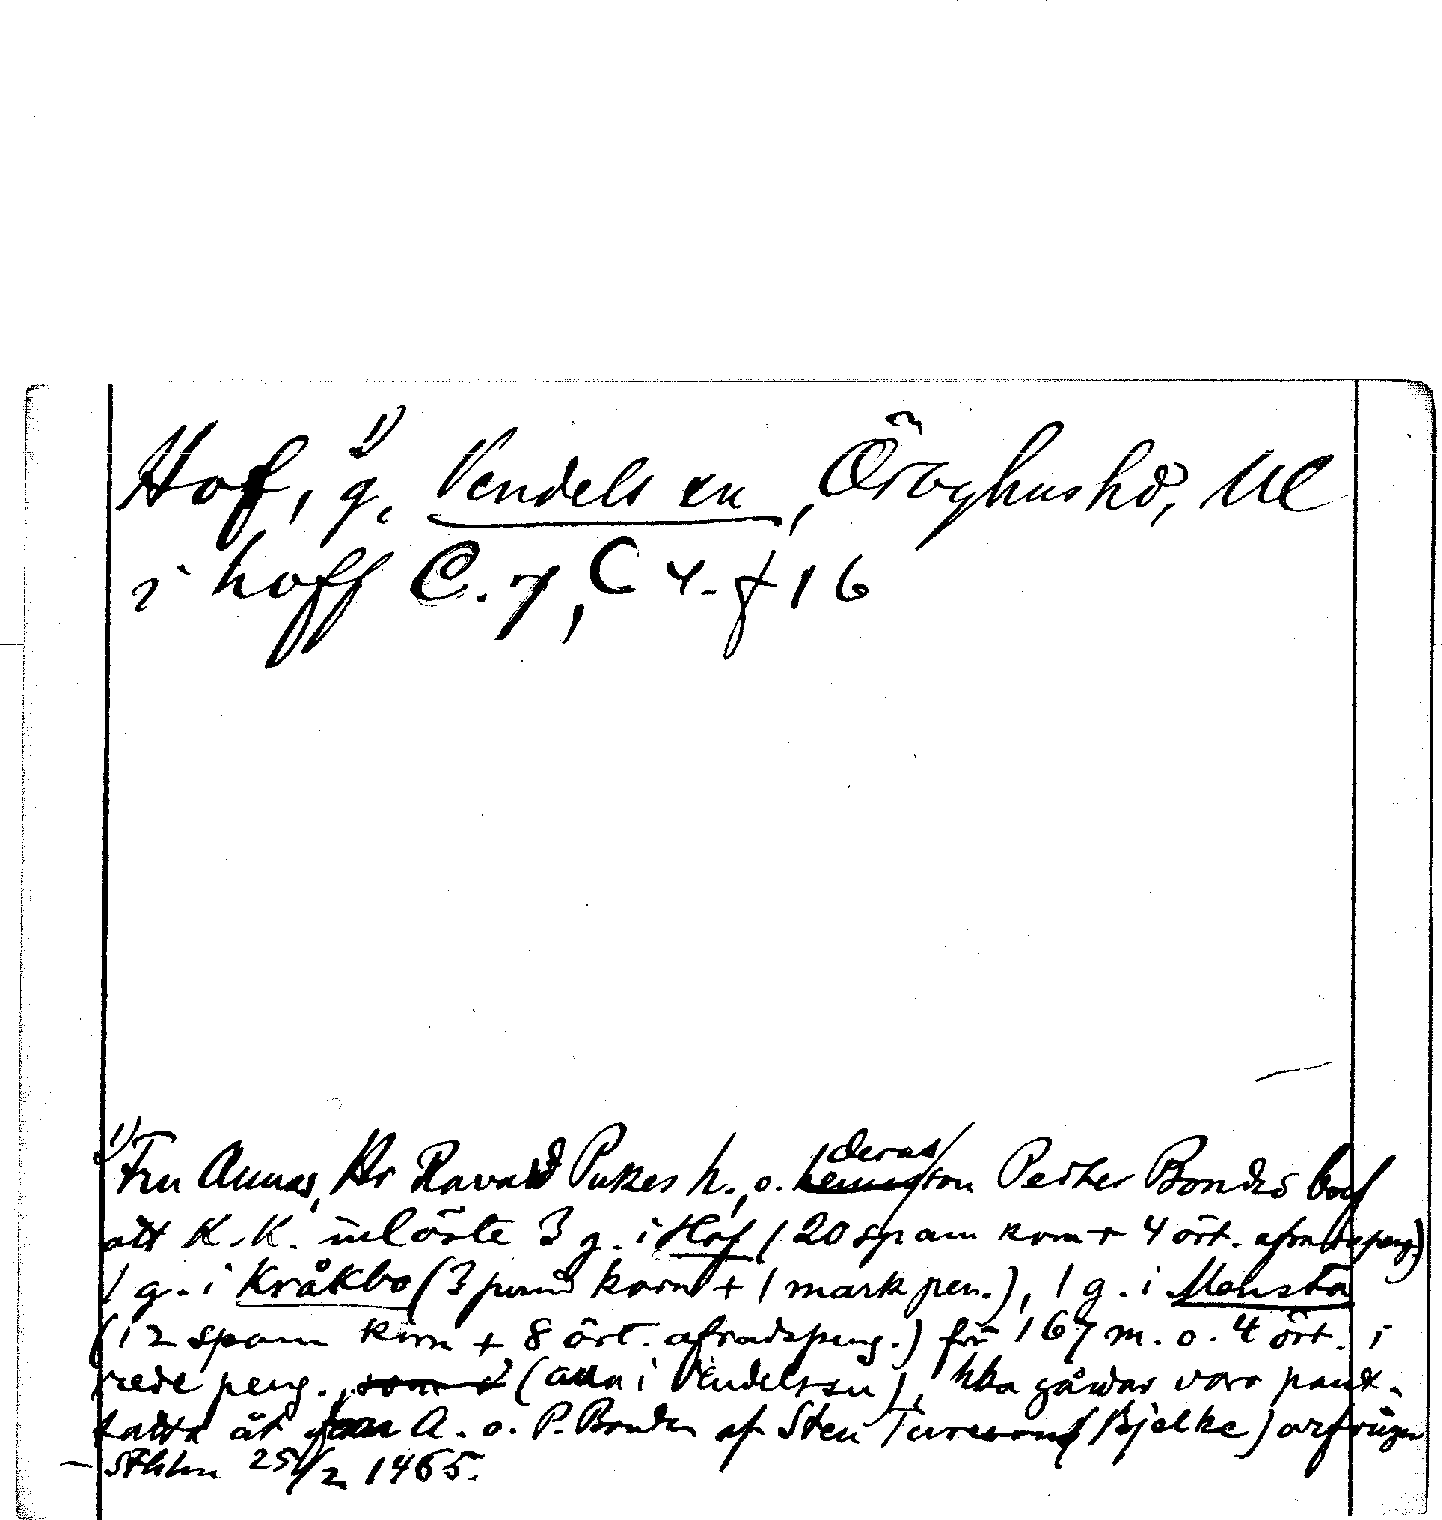 Hof,¹⁾ g. Vendels sn, Örbyhus hd, Ul
i hoff C. 7, C 4. f 16
¹⁾ Fru Annas, Hr Ravald Pukes h., o. deras son Peder Bondes bref
att K.K. inlöste 3 g. i Hof (20 spam korn + 4 ört. afradspeng.)
1 g. i Kråkbo (3 pund korn + 1 mark pen.), 1 g. i Mensta
(12 spann korn + 8 ört. afradspeng.) för 167 m. o. 4 ört. i
rede peng. (alla i Vendels sn), hka gårdar voro pant-
satta åt A. o. P. Bonde af Sten Turesons (Bjelke)
Sthlm 25/2 1465.